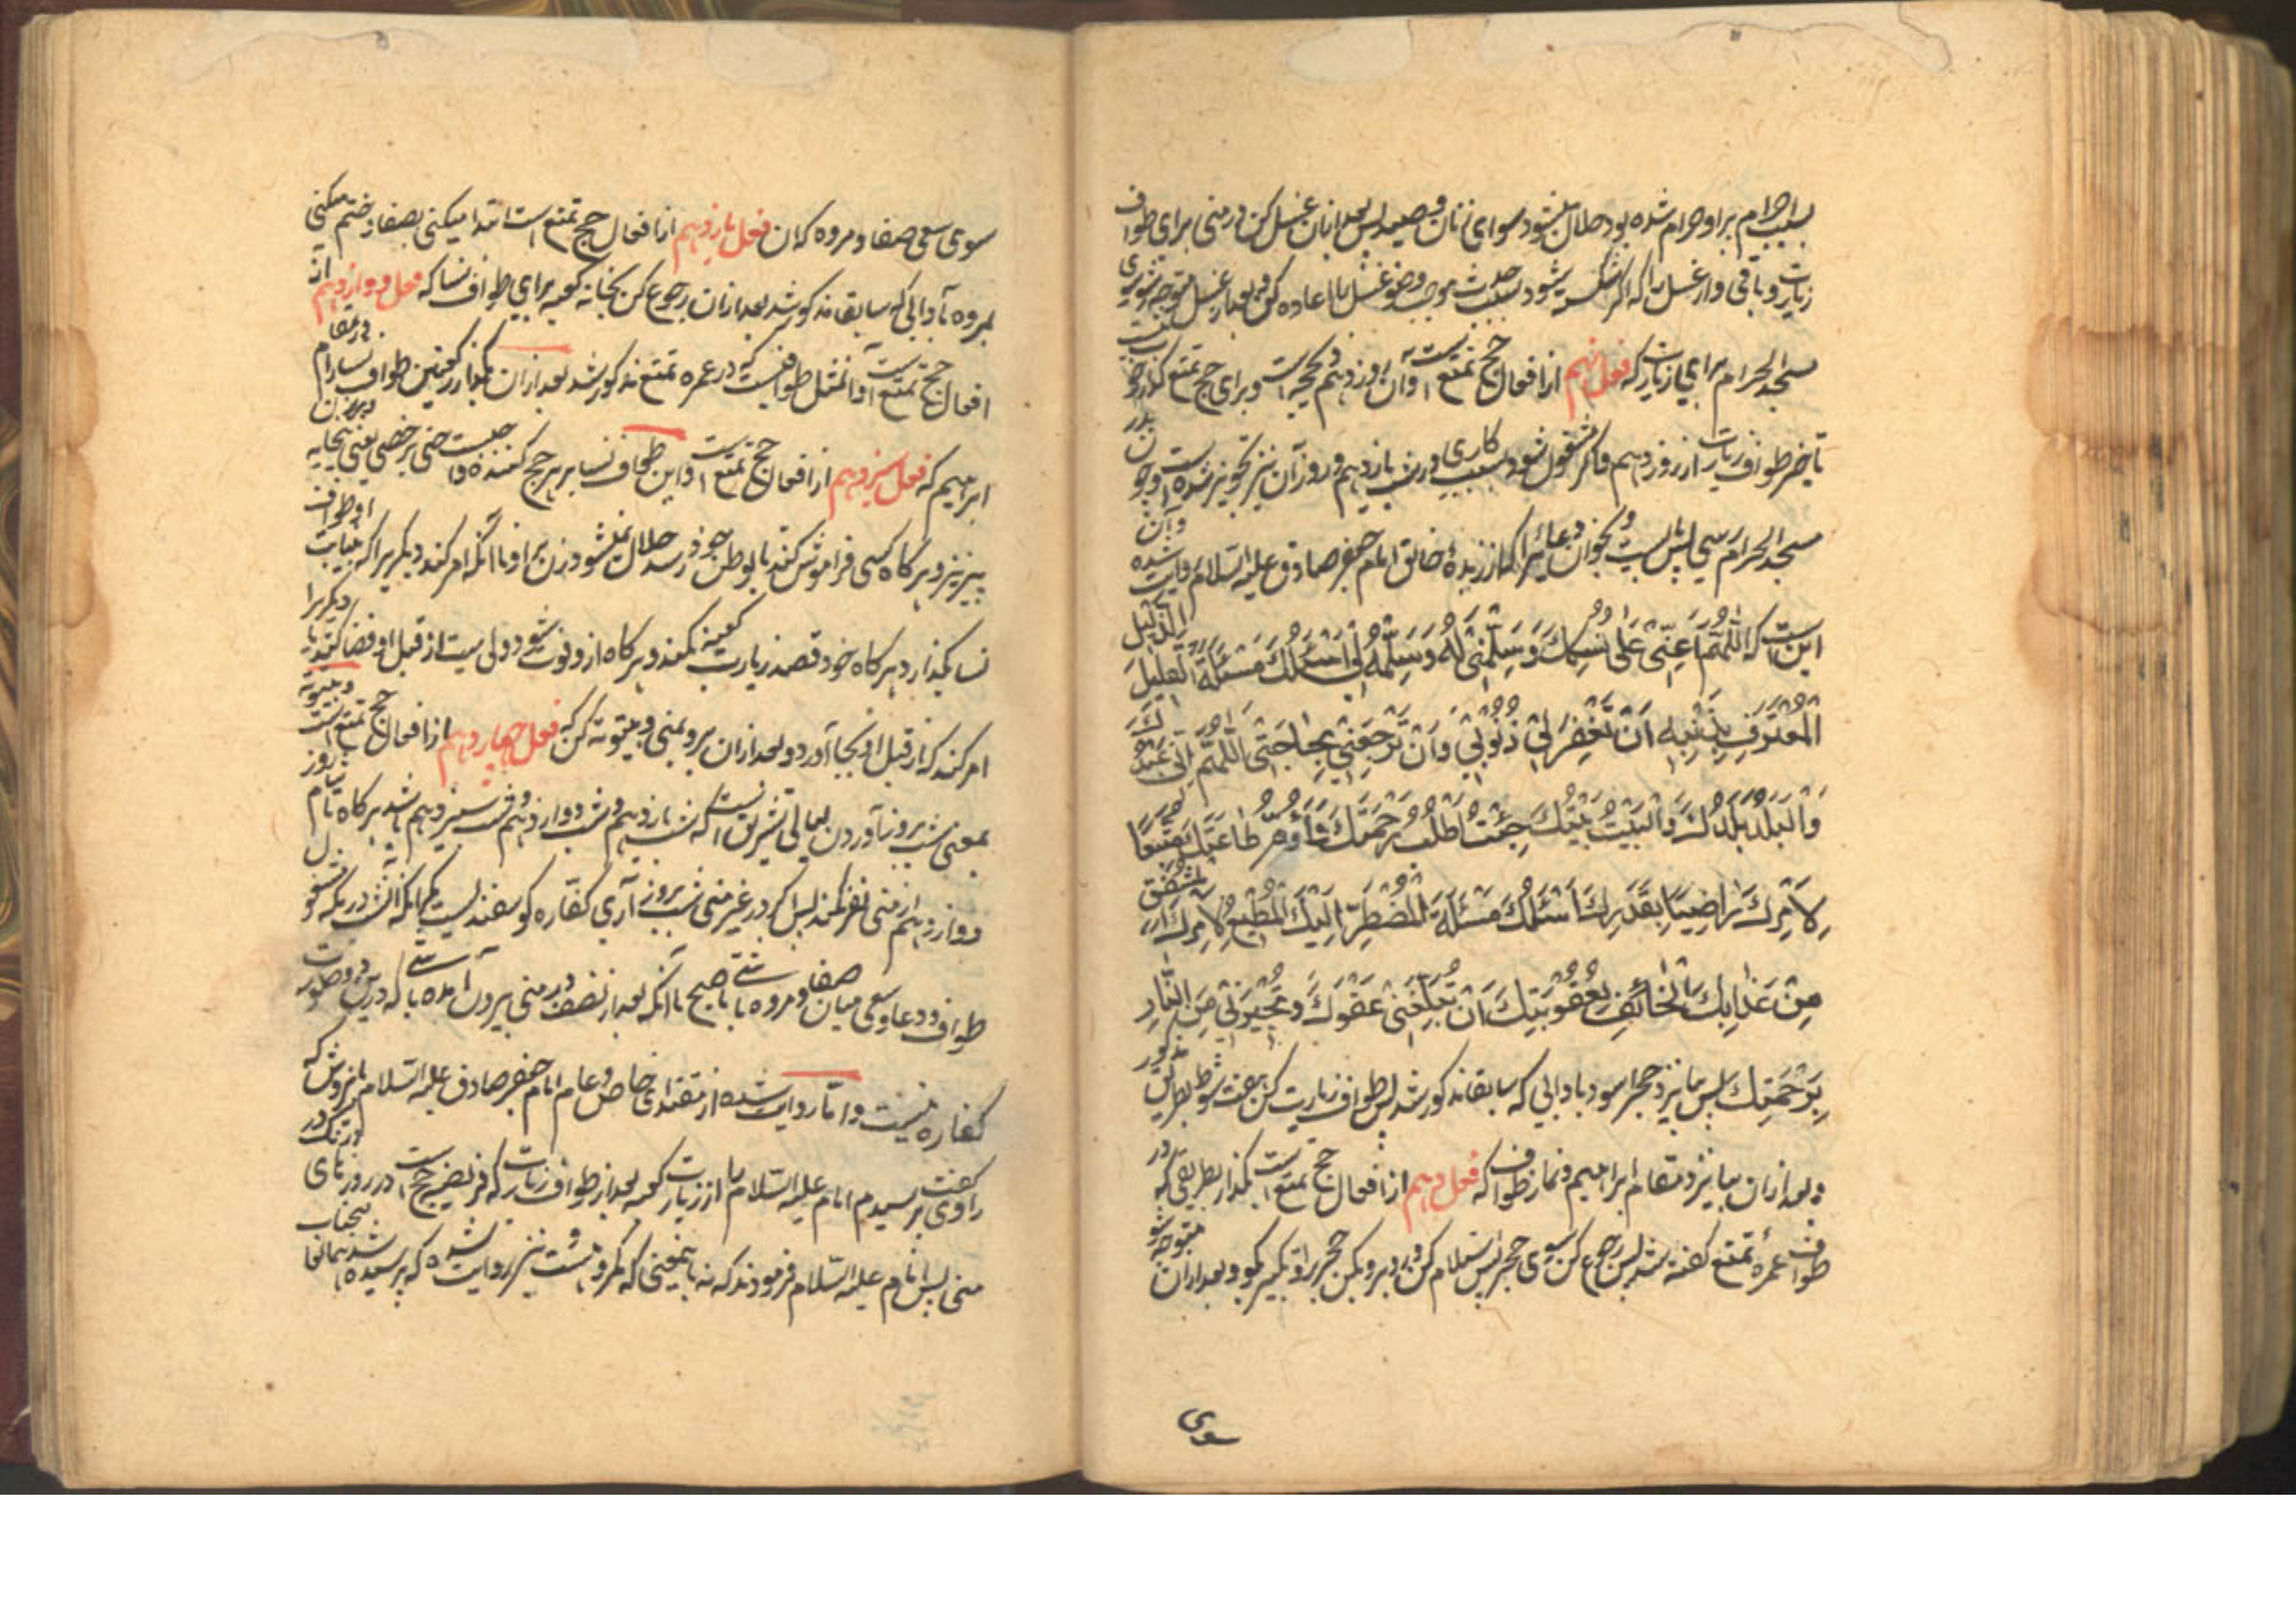 بسبب احرام بر او حرام شده بود حلال میشود سوای زنان و صید پس بعد ازان غسل کن در منی برای طواف
زیارت و باقی دار غسل را که اگر شکسته شود بسبب حدث موجب وضو غسل را اعاده کن و بعد از غسل متوجه شو بسوی
مسجد الحرام برای زیارت که فعل نهم از افعال حج تمتع است و آن روز دهم ذیحجه است و برای حج تمتع
تاخیر طواف زیارت از روز دهم و اگر مشغول شود بسبب کاری در شب یازدهم و روز آن نیز تجویز شده است و چون بدر
مسجد الحرام رسی پس بایست و بخوان دعائیرا که از زبدهٔ خلایق امام جعفر صادق علیه السلام روایت شده و آن
اینست که اَللّٰهُمَّ اَعِنِّی عَلٰی نُسُکِكَ وَسَلِّمْنِی لَهُ وَسَلِّمْهُ لِی اَسْئَلُكَ مَسْئَلَةَ الْعَلِیلِ الذَّلِیلِ
الْمُعْتَرِفِ بِذَنْبِهِ اَنْ تَغْفِرَ لِی ذُنُوبِی وَاَنْ تَرْجِعَنِی بِحَاجَتِی اَللّٰهُمَّ اِنِّی عَبْدُكَ
وَالْبَلَدُ بَلَدُكَ وَالْبَیْتُ بَیْتُكَ جِئْتُ اَطْلُبُ رَحْمَتَكَ وَاَؤُمُّ طَاعَتَكَ مُتَّبِعًا
لِاَمْرِكَ رَاضِیًا بِقَدَرِكَ اَسْئَلُكَ مَسْئَلَةَ الْمُضْطَرِّ اِلَیْكَ الْمُطِیعِ لِاَمْرِكَ الْمُشْفِقِ
مِنْ عَذَابِكَ الْخَائِفِ لِعُقُوبَتِكَ اَنْ تُبَلِّغَنِی عَفْوَكَ وَتُجِیرَنِی مِنَ النَّارِ
بِرَحْمَتِكَ پس بیا نزد حجر اسود بادابی که سابقا مذکور شد پس طواف زیارت کن هفت شوط بطریق مذکور
و بعد ازان بیا نزد مقام ابراهیم و نماز طواف که فعل دهم از افعال حج تمتع است بگذار بطریقی که در
طواف عمرهٔ تمتع گفته شد پس رجوع کن بسوی حجر پس استلام کن و رو برو بکن حجر را و تکبیر بگو و بعد ازان متوجه شو
سوی
سوی سعی صفا و مروه که ان فعل یازدهم از افعال حج تمتع است ابتدا میکنی بصفا و ختم میکنی
بمروه بآدابی که سابقا مذکور شد بعد ازان رجوع کن بخانه کعبه برای طواف نسا که فعل دوازدهم از
افعال حج تمتع است و آن مثل طوافیست که در عمره تمتع مذکور شد بعد ازان بگذار رکعتین طواف نسا را در مقام
ابراهیم که فعل سیزدهم از افعال حج تمتع است و این طواف نسا بر هر حج کننده واجبست حتی بر خصی یعنی بیخایه و بر زن
پیز نیز و هرگاه کسی فراموش کند یا بوطن خود رسد حلال نمیشود زن بر او تا آنکه امر کند دیگریرا که بنیابت او طواف
نسا بگذارد هرگاه خود قصد زیارت کعبه نکند و هرگاه ازو فوت شود ولی میت از قبل او قضا کند یا دیگریرا
امر کند که از قبل او بجا آورد و بعد ازان برو بمنی و بیتوته کن که فعل چهاردهم از افعال حج تمتع است و بیتوته
بمعنی شب بروز آوردن لیالی تشریق است که شب یازدهم و شب دوازدهم و شب سیزدهم باشد هرگاه تا شام روز
دوازدهم از منی نفر نکند پس اگر در غیر منی شب بروز آری کفاره گوسفند لیست مگر آنکه آنشب در مکه مشغول
طواف و دعا و سعی میان صفا و مروه باشی تا صبح یا آنکه بعد از نصف شب در منی بیرون آمده باشی که درین دو صورت
کفاره نیست و اما روایت شده از مقتدای خاص و عام امام جعفر صادق علیه السلام باینروش که
راوی گفت پرسیدم امام علیه السلام را از زیارت کعبه بعد از طواف زیارت که فریضه حج است در روزهای درنگ در
منی پس امام علیه السلام فرمودند که نه باینمعنی که مکروهست و نیز روایت شده که پرسیده شد همانجناب